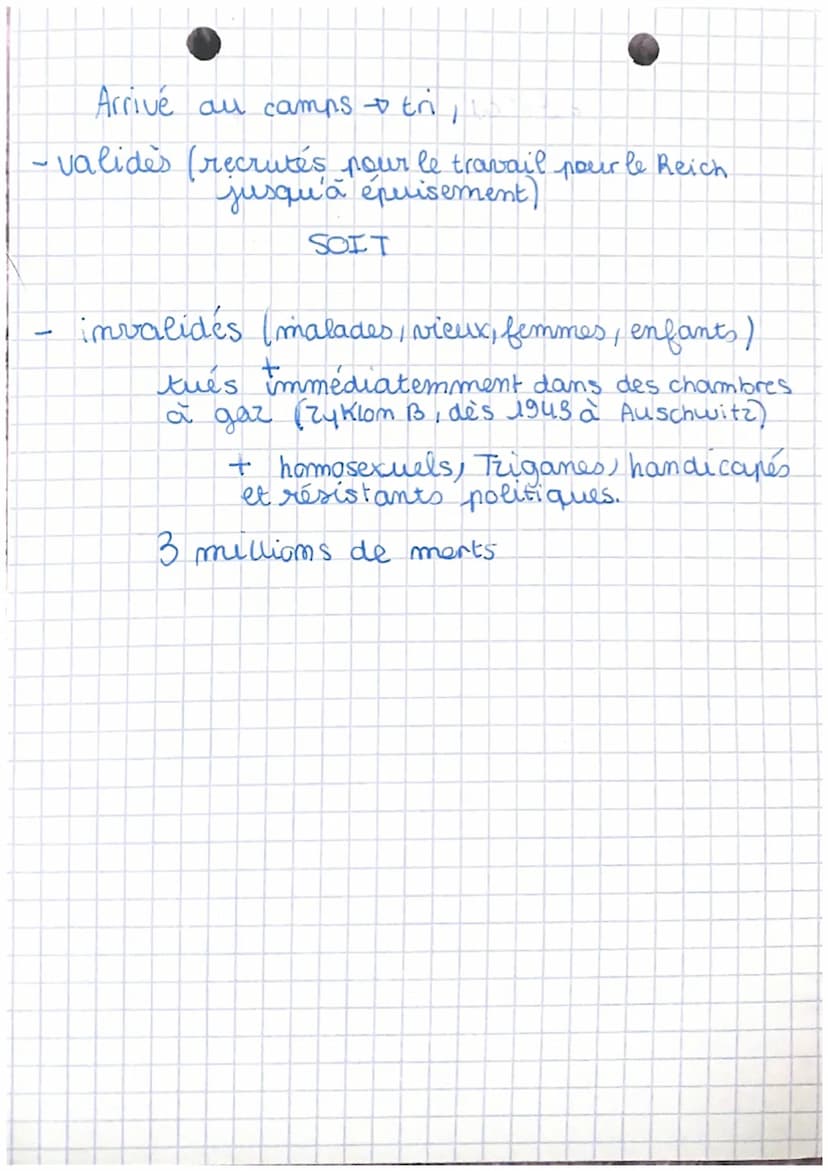 Arrivé au camps → tri,
- validès (recrutés pour le travail pour le Reich
jusqu'à épuisement)
SOIT
- invalidés (malades, vieux, femmes, enfants)
+
tués immédiatemment dans des chambres
à gaz (Zyklom B, dès 1943 à Auschwitz)
+ homosexuels, Tziganes, handicapés
et résistants politiques.
3 millions de morts